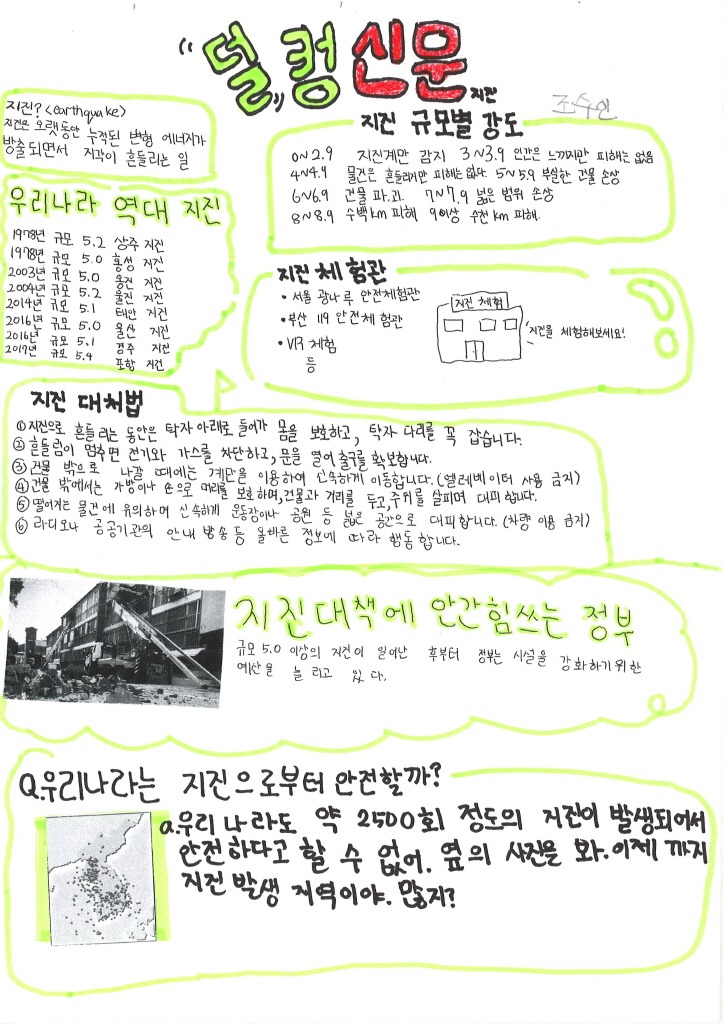 "덜,컹" 신문
지진
조수인
지진? <earthquake>
지진은 오랫동안 누적된 변형 에너지가
방출되면서 지각이 흔들리는 일
지진 규모별 강도
0~2.9 지진계만 감지 3~3.9 인간은 느끼지만 피해는 없음
4~4.9 물건은 흔들리지만 피해는 없다. 5~5.9 부실한 건물 손상
6~6.9 건물 파.괴. 7~7.9 넓은 범위 손상
8~8.9 수백km 피해 9이상 수천km 피해.
우리나라 역대 지진
1978년 규모 5.2 상주 지진
1978년 규모 5.0 홍성 지진
2003년 규모 5.0 옹진 지진
2004년 규모 5.2 울진 지진
2014년 규모 5.1 태안 지진
2016년 규모 5.0 울산 지진
2016년 규모 5.1 경주 지진
2017년 규모 5.4 포항 지진
지진 체험관
• 서울 광나루 안전체험관
• 부산 119 안전체험관
• VR 체험
등
지진 체험
지진을 체험해보세요!
지진 대처법
① 지진으로 흔들리는 동안은 탁자 아래로 들어가 몸을 보호하고, 탁자 다리를 꼭 잡습니다.
② 흔들림이 멈추면 전기와 가스를 차단하고, 문을 열어 출구를 확보합니다.
③ 건물 밖으로 나갈 때에는 계단을 이용하여 신속하게 이동합니다. (엘레베이터 사용 금지)
④ 건물 밖에서는 가방이나 손으로 머리를 보호하며, 건물과 거리를 두고, 주위를 살피며 대피합니다.
⑤ 떨어지는 물건에 유의하며 신속하게 운동장이나 공원 등 넓은 공간으로 대피합니다. (차량 이용 금지)
⑥ 라디오나 공공기관의 안내 방송 등 올바른 정보에 따라 행동합니다.
지진대책에 안간힘쓰는 정부
규모 5.0 이상의 지진이 일어난 후부터 정부는 시설을 강화하기위한
예산을 늘리고 있다.
Q.우리나라는 지진으로부터 안전할까?
a.우리나라도 약 2500회 정도의 지진이 발생되어서
안전하다고 할 수 없어. 옆의 사진을 봐. 이제까지
지진 발생 지역이야. 많지?